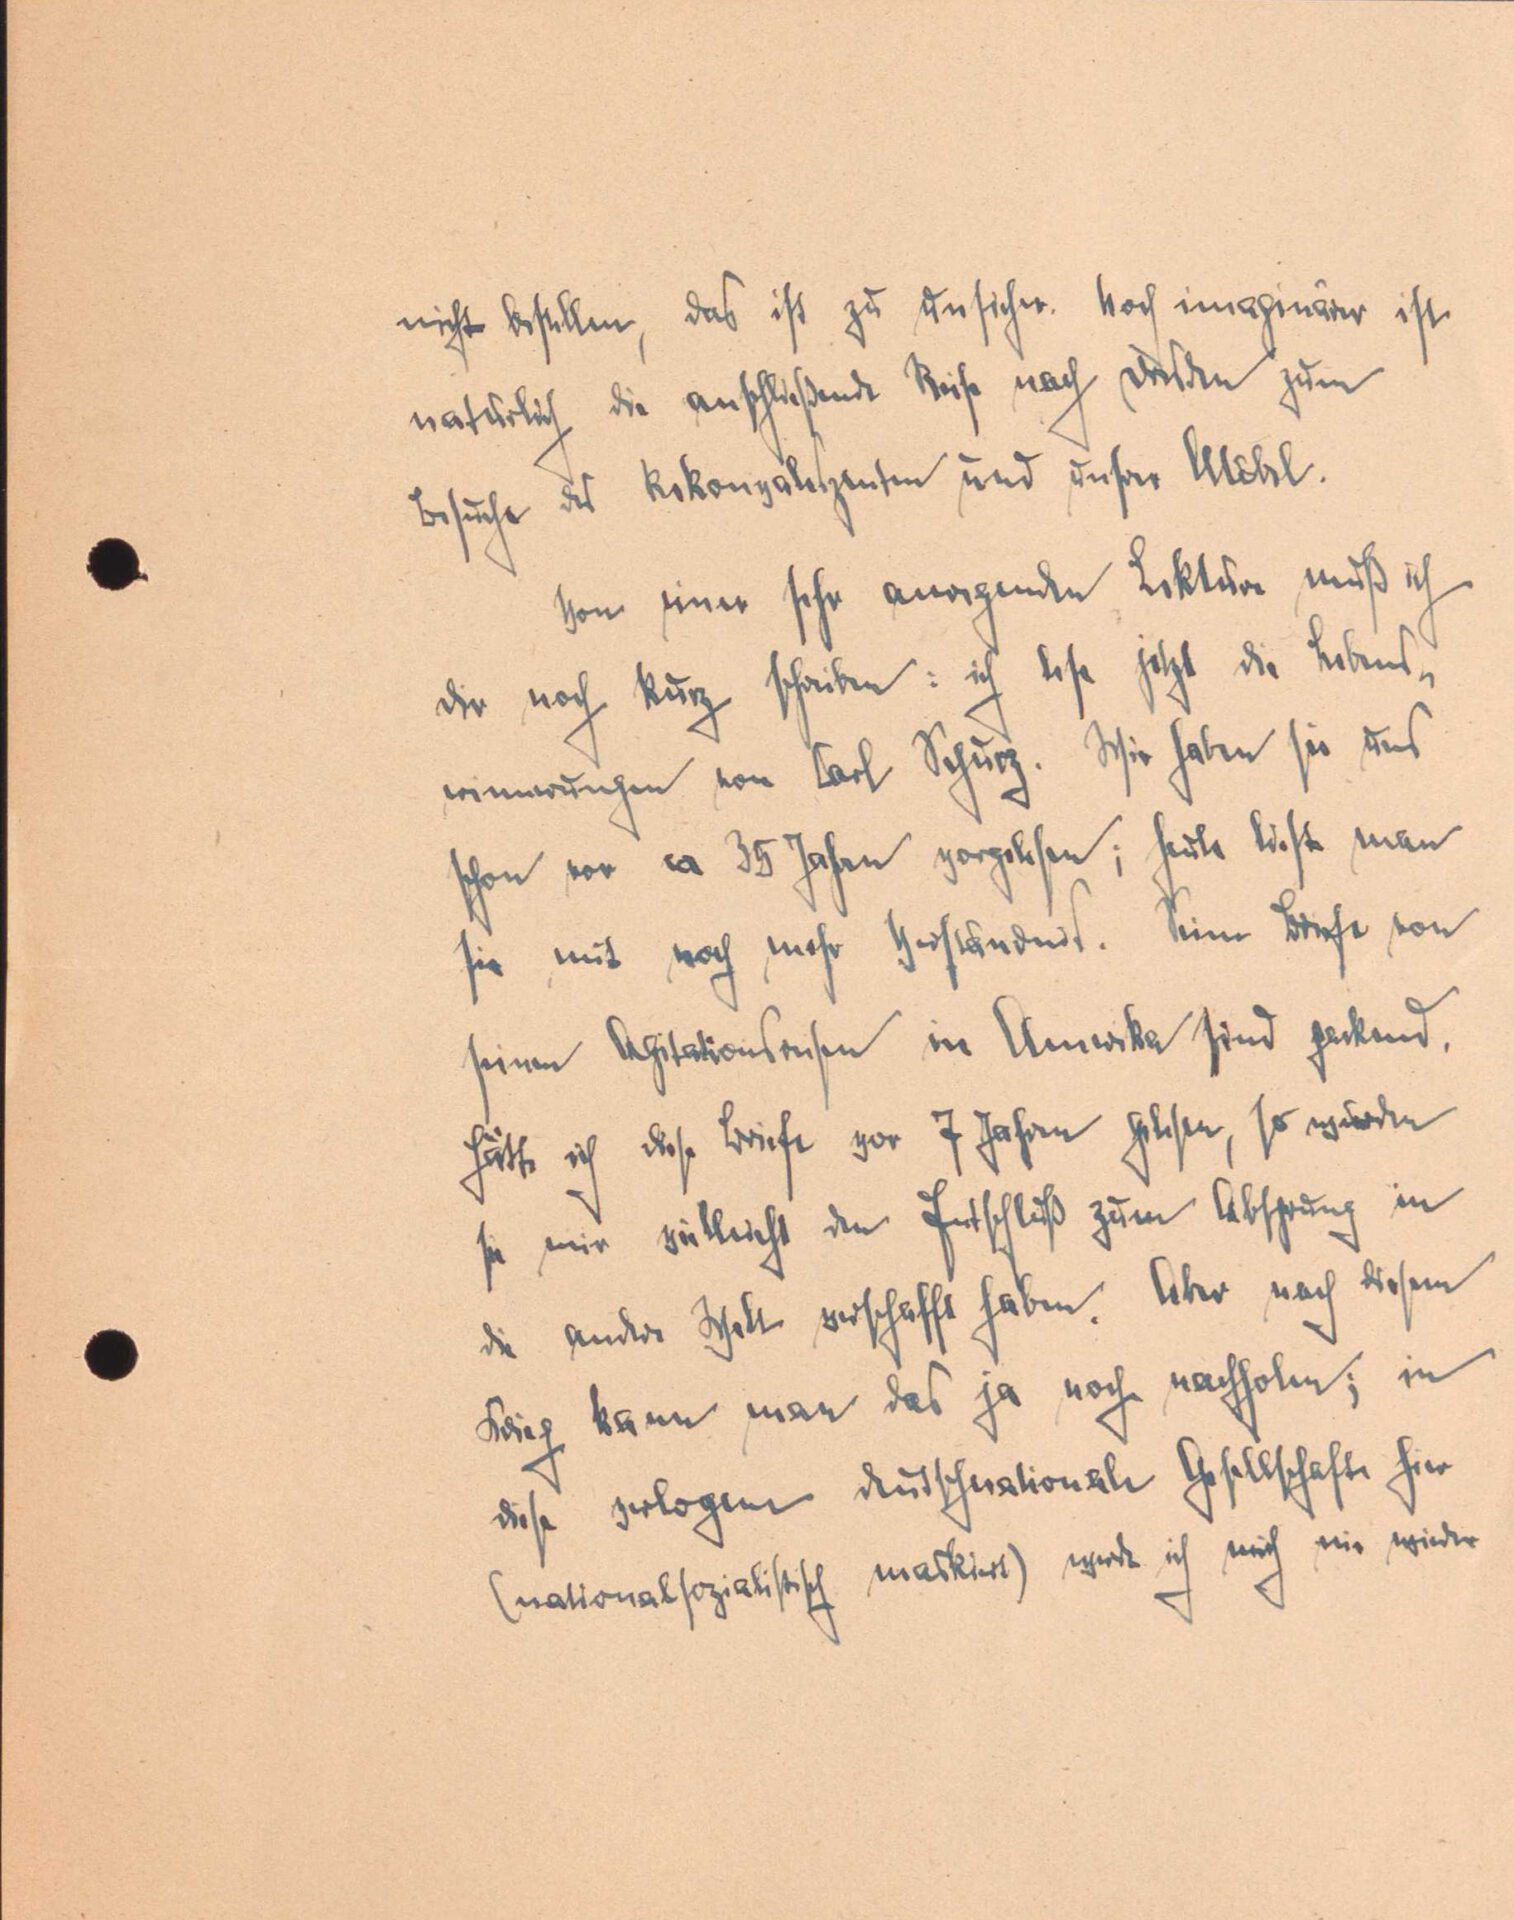 nicht bestellen, das ist zu unsicher. Noch imaginärer ist
natürlich die anschließende Reise nach Dresden zum
Besuche des Rekonvaleszenten und unsrer Möbel.
Von einer sehr anregenden Lektüre muß ich
dir noch kurz schreiben: ich lese jetzt die Lebens-
erinnerungen von Carl Schurz. Wir haben sie uns
schon vor ca 35 Jahren vorgelesen; heute liest man
sie mit noch mehr Verständnis. Seine Briefe von
seinen Agitationsreisen in Amerika sind packend.
Hätte ich diese Briefe vor 7 Jahren gelesen, so würden
sie mir vielleicht den Entschluß zum Absprung in
die andere Welt verschafft haben. Aber nach diesem
Krieg kann man das ja noch nachholen; in
diese verlogene deutschnationale Gesellschaft hier
(nationalsozialistisch maskiert) werde ich mich nie wieder